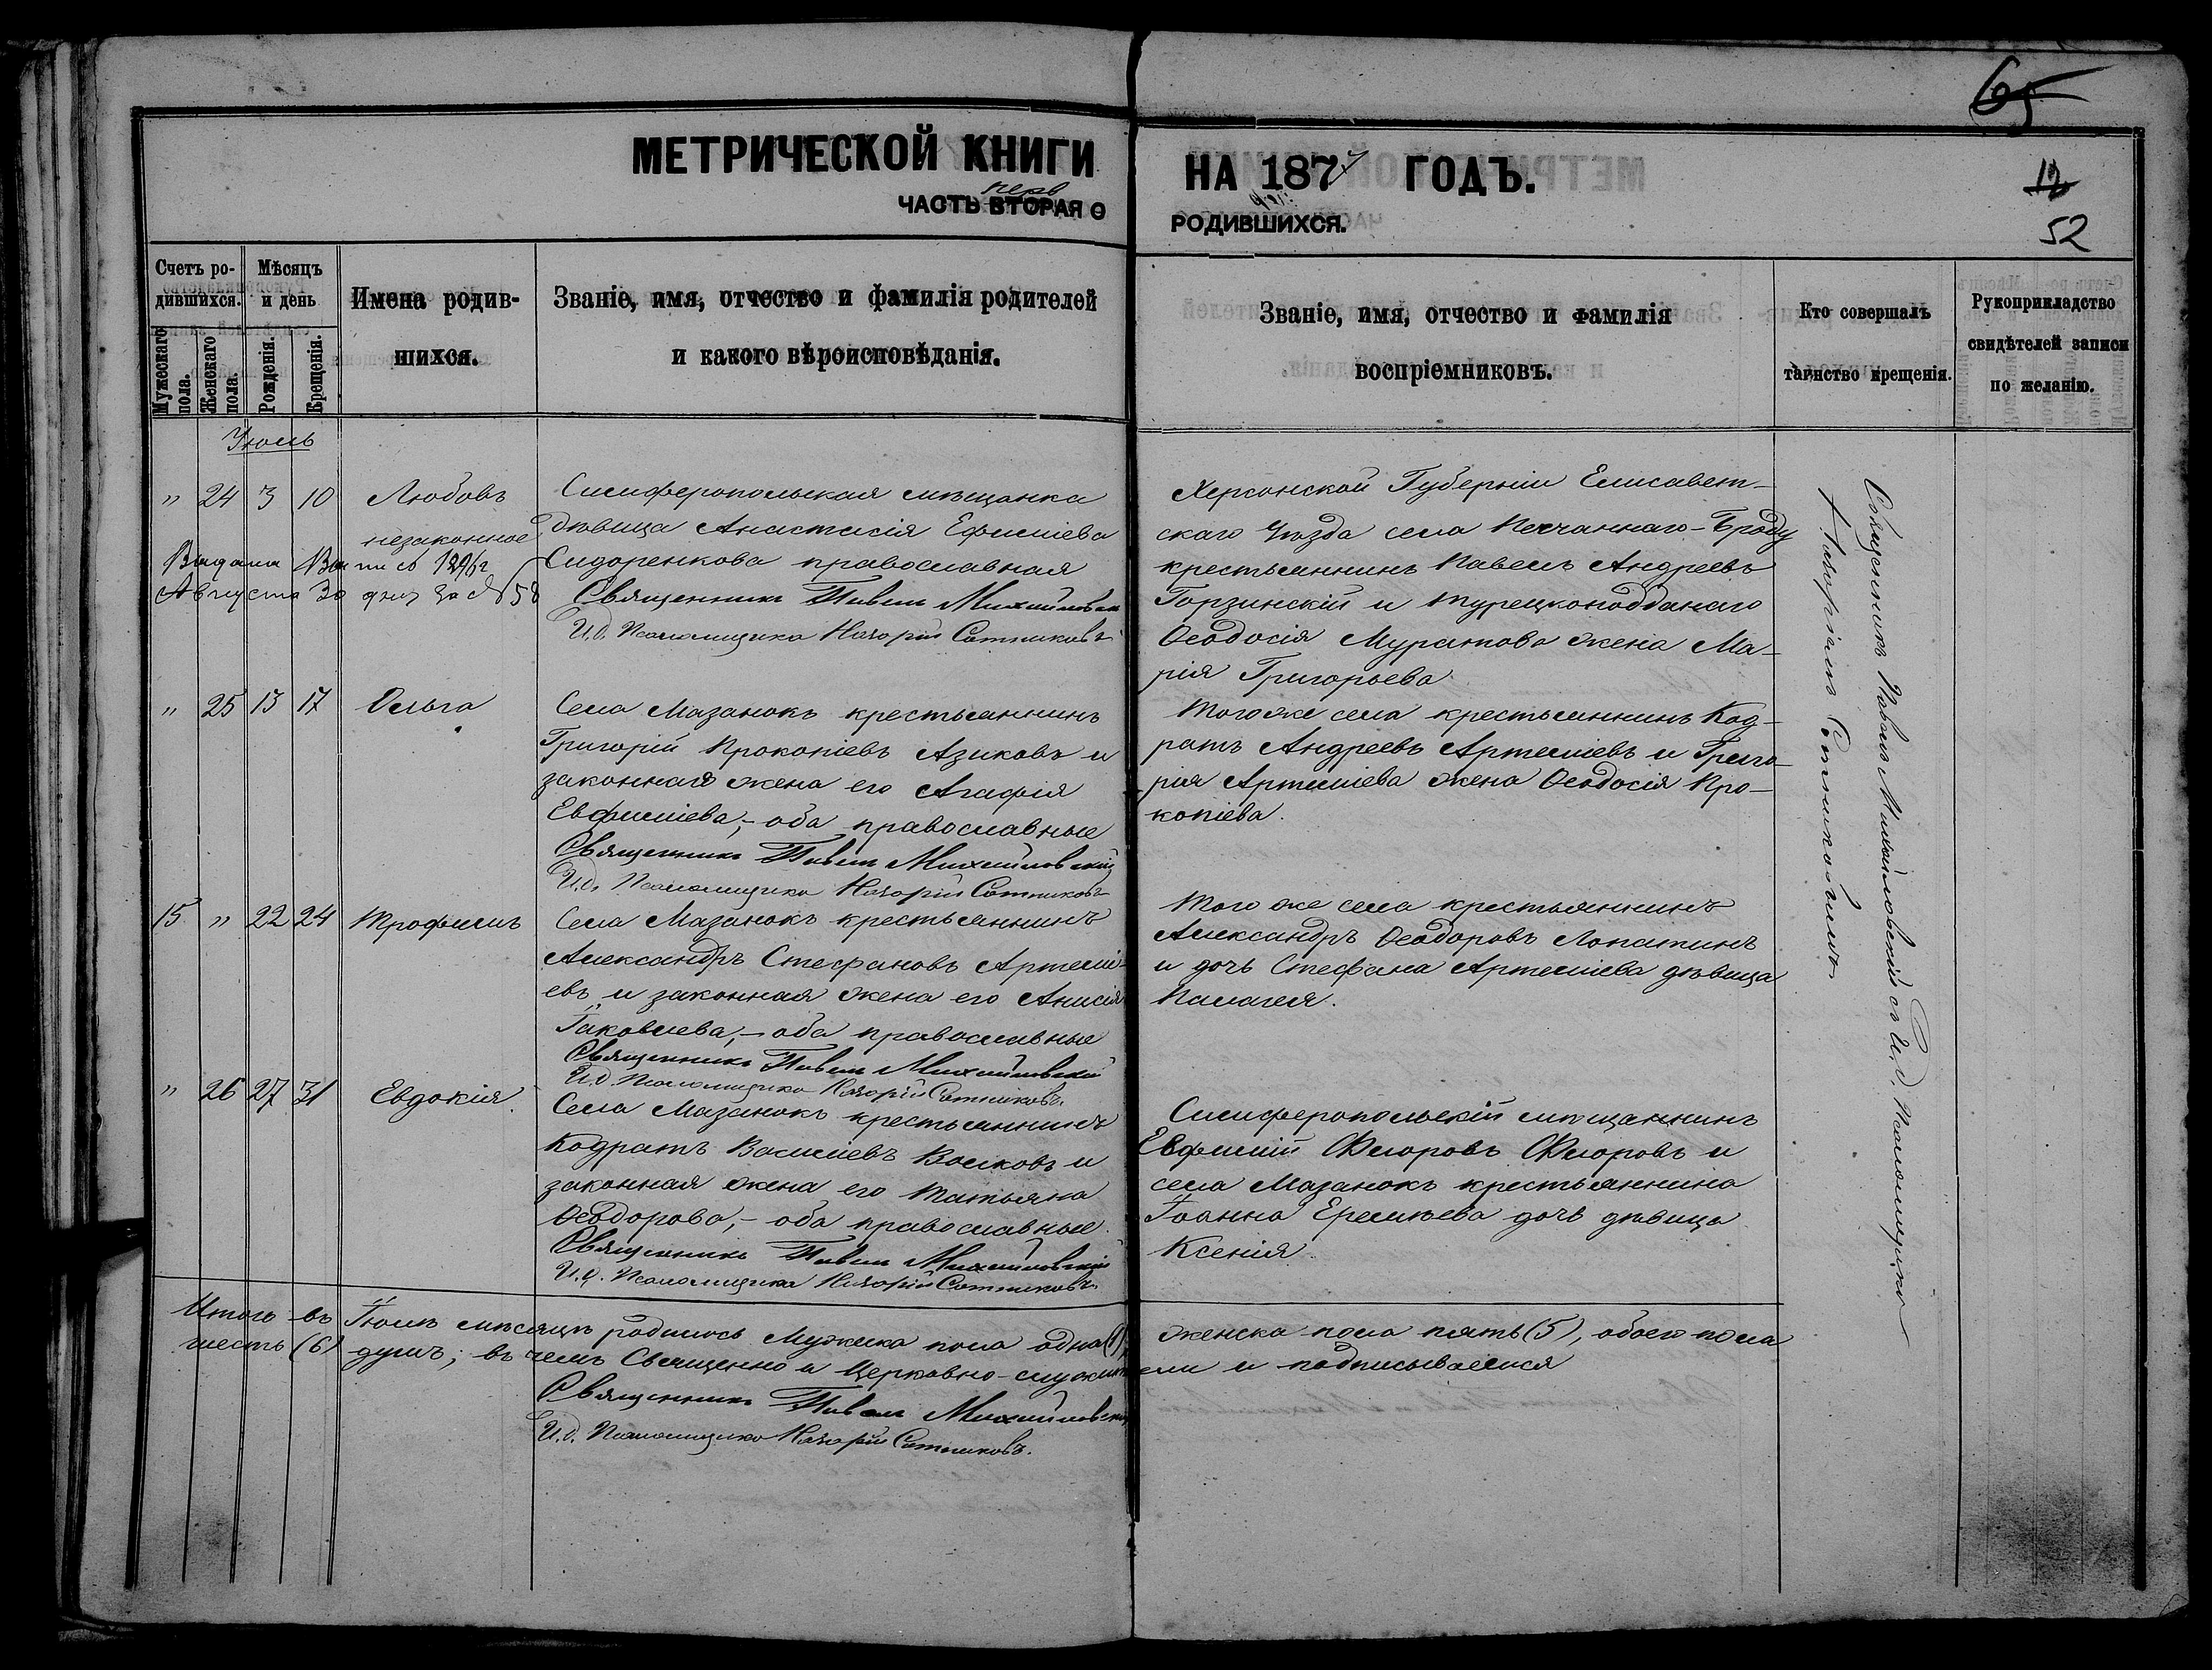 65
МЕТРИЧЕСКОЙ КНИГИ НА 1877 ГОДЪ.
12
52
перв
ЧАСТЬ ВТОРАЯ О РОДИВШИХСЯ.
Счетъ родившихся.
Мужескаго пола.
Женскаго пола.
Мѣсяцъ и день
Рожденія.
Крещенія.
Имена родившихся.
Званіе, имя, отчество и фамилія родителей
и какого вѣроисповѣданія.
Званіе, имя, отчество и фамилія
воспріемниковъ.
Кто совершалъ
таинство крещенія.
Рукоприкладство
свидѣтелей записи
по желанію.
Іюль
" 24 3 10 Любовь
незаконное
Выдана Выпись 1896 г
Августа 30 дня за № 58
Симферопольская мѣщанка
дѣвица Анастасія Ефиміева
Сидоренкова православная
Священникъ Павелъ Михайловскій
И.д. Псаломщика Назорій Сотниковъ
Херсонской Губерніи Елисавет-
скаго Уѣзда села Песчаннаго-Броду
крестьяннинъ Павелъ Андреевъ
Горзинскій и турецкоподданаго
Ѳеодосія Муратова жена Ма-
рія Григорьева
" 25 13 17 Ольга
Села Мазанокъ крестьяннинъ
Григорій Прокопіевъ Азиковъ и
законная жена его Агафія
Евфиміева,- оба православные
Священникъ Павелъ Михайловскій
И.д. Псаломщика Назорій Сотниковъ
Того же села крестьяннинъ Код-
ратъ Андреевъ Артеміевъ и Григо-
рія Артеміева жена Ѳеодосія Про-
копіева.
15 " 22 24 Трофимъ
Села Мазанокъ крестьяннинъ
Александръ Стефановъ Артемі-
евъ и законная жена его Анисія
Іаковлева,- оба православные
Священникъ Павелъ Михайловскій
И.д. Псаломщика Назорій Сотниковъ.
Того же села крестьяннинъ
Александръ Ѳеодоровъ Лопатинъ
и дочь Стефана Артеміева дѣвица
Палагея.
" 26 27 31 Евдокія.
Села Мазанокъ крестьяннинъ
Кодратъ Василіевъ Волковъ и
законная жена его Татьяна
Ѳеодорова,- оба православные.
Священникъ Павелъ Михайловскій
И.д. Псаломщика Назорій Сотниковъ.
Симферопольскій мѣщаннинъ
Евфимій Флоровъ Флоровъ и
села Мазанокъ крестьяннина
Іоанна Еремѣева дочь дѣвица
Ксенія.
Священникъ Павелъ Михайловскій съ И.д. Псаломщика
Сотниковымъ.
Итого въ Іюлѣ мѣсяцѣ родилось Мужеска пола одна (1), женска пола пять (5), обоего пола
шесть (6) душъ; въ чемъ Священно и Церковно-служители и подписываемся
Священникъ Павелъ Михайловскій
И.д. Псаломщика Назорій Сотниковъ.